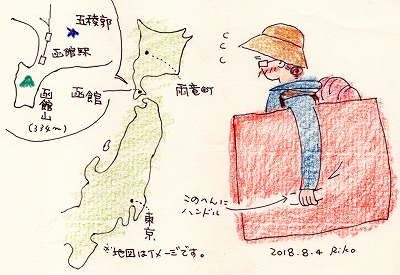 五稜郭
函館駅
函館山
(334m)
函館
雨竜町
東京
※地図はイメージです。
C
C
C
このへんに
ハンドル
2018.8.4 Riko